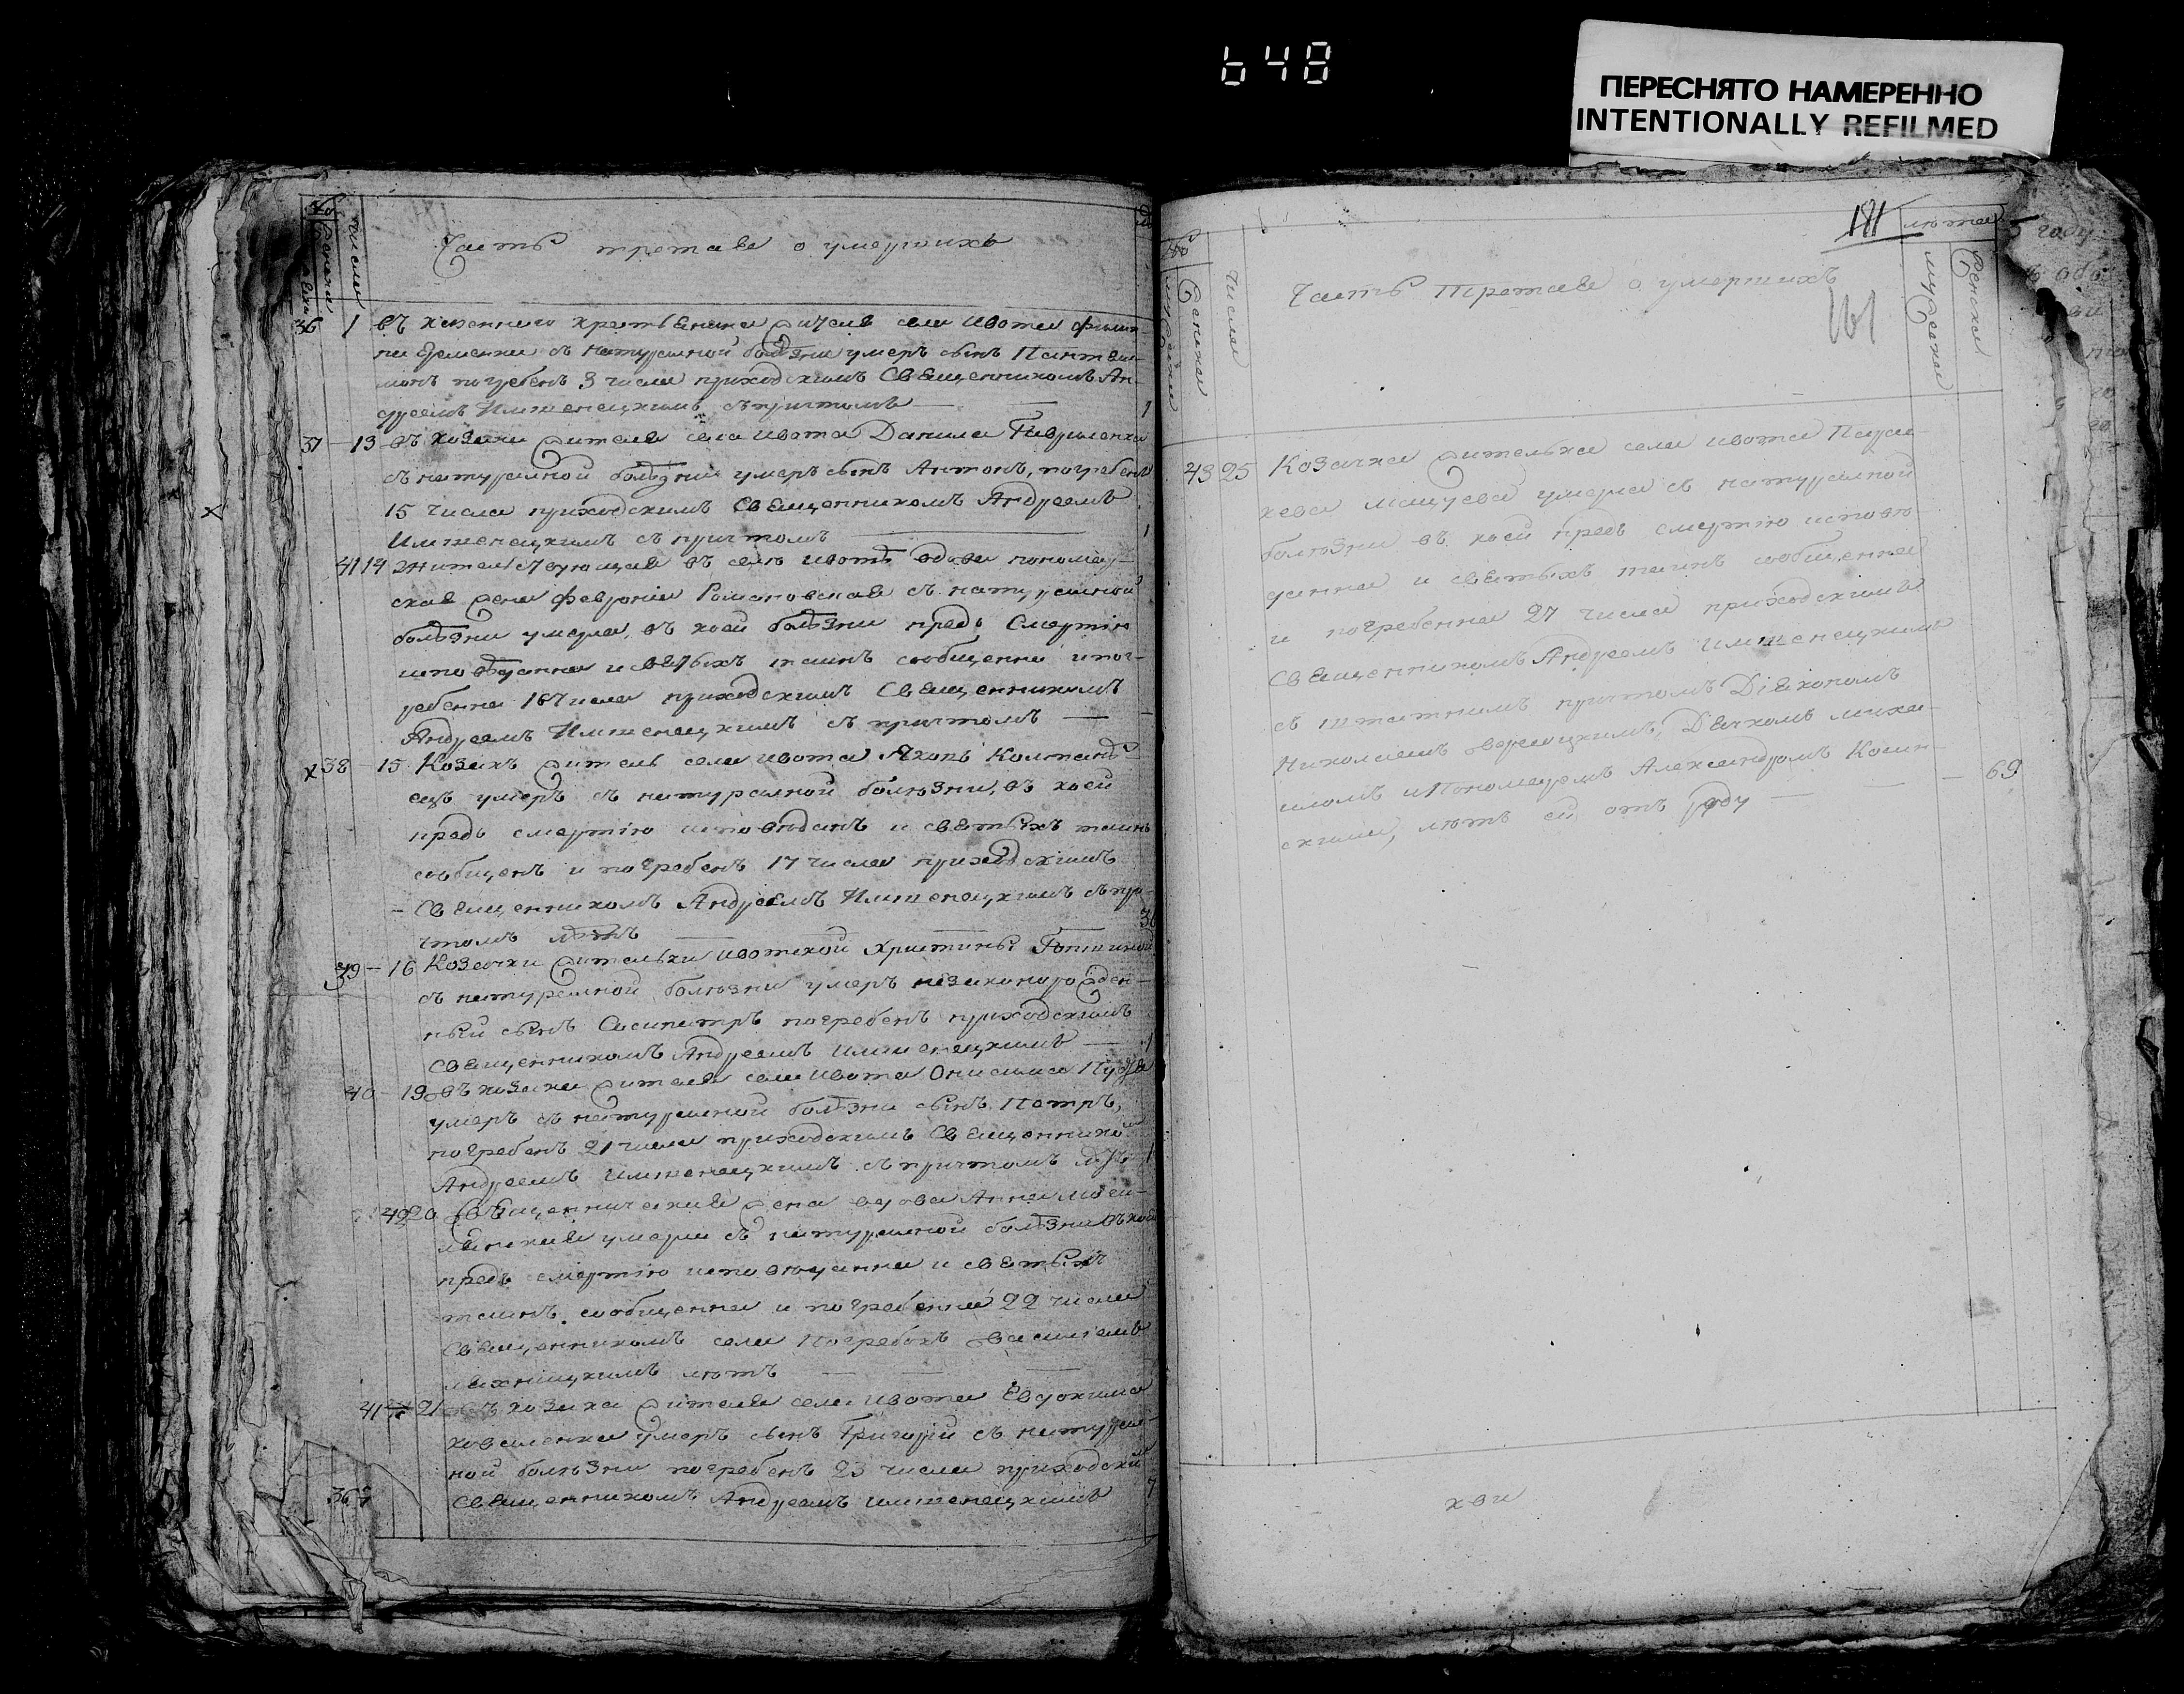 648
ПЕРЕСНЯТО НАМЕРЕННО
INTENTIONALLY REFILMED
числа
Часть третая о умершихъ
36 1 въ казенного крестьянина жителя села Ивота
Еременка съ натуральной болѣзни умеръ сынъ Пантели-
монъ погребенъ 3 числа приходскимъ Священникомъ Ан-
дреемъ Имшенецкимъ съ причтомъ — 1
37 — 13 въ козака жителя села Ивота Данила Гавриленка
съ натуралной болѣзни умеръ сынъ Антонъ, погребенъ
15 числа приходскимъ Священникомъ Андреемъ
Имшенецкимъ съ причтомъ — 1
41 14 Жителствующая въ селѣ Ивотѣ вдова пономар-
ская жена Феврония Романовская съ натуралной
болѣзни умерла, въ коей болѣзни предъ Смертію
исповѣданна и святыхъ таинъ сообщенна и пог-
ребенна 16 числа приходскимъ Священникомъ
Андреемъ Имшенецкимъ съ причтомъ —
х 38 — 15 Козакъ житель села Ивота Яковъ
умеръ съ натуралной болѣзни, въ коей
предъ смертію исповѣданъ и святыхъ таинъ
сообщенъ и погребенъ 17 числа приходскимъ
— Священникомъ Андреемъ Имшенецкимъ съ при-
чтомъ лѣтъ —
39 — 16 Козачки жителки Ивотской Христины
съ натуралной болѣзни умеръ незаконорожден-
ный сынъ Сосипатръ погребенъ приходскимъ
Священникомъ Андреемъ Имшенецкимъ — 1
40 — 19 въ козака жителя села Ивота Онисима
умеръ съ натуралной болѣзни сынъ Петръ,
погребенъ 21 числа приходскимъ Священнико
Андреемъ Имшенецкимъ съ причтомъ 1
42 20 Священническая жена вдова Анна
умерла съ натуралной болѣзни въ коей
предъ смертію исповѣданна и святыхъ
таинъ сообщенна и погребенна 22 числа
Священникомъ села Погребокъ Василіемъ
лѣтъ — — —
41 21 въ козака жителя села Ивота Евдокима
Коваленка умеръ сынъ Григорій съ натурал-
ной болѣзни погребенъ 23 числа приходски
Священникомъ Андреемъ Имшенецкимъ 7
36
181
лѣта
числа
Часть третая о умершихъ
43 25 Козачка жителька села Ивота Парас-
кева умерла съ натуралной
болѣзни въ коей предъ смертію исповѣ
данна и святыхъ таинъ сообщенна
и погребенна 27 числа приходскимъ
Священникомъ Андреемъ Имшенецкимъ
съ штатнымъ причтомъ Діякономъ
Николаемъ Дячкомъ Миха-
иломъ и Пономаремъ Александромъ Косин-
скими, лѣтъ ей отъ роду — — — 69
году